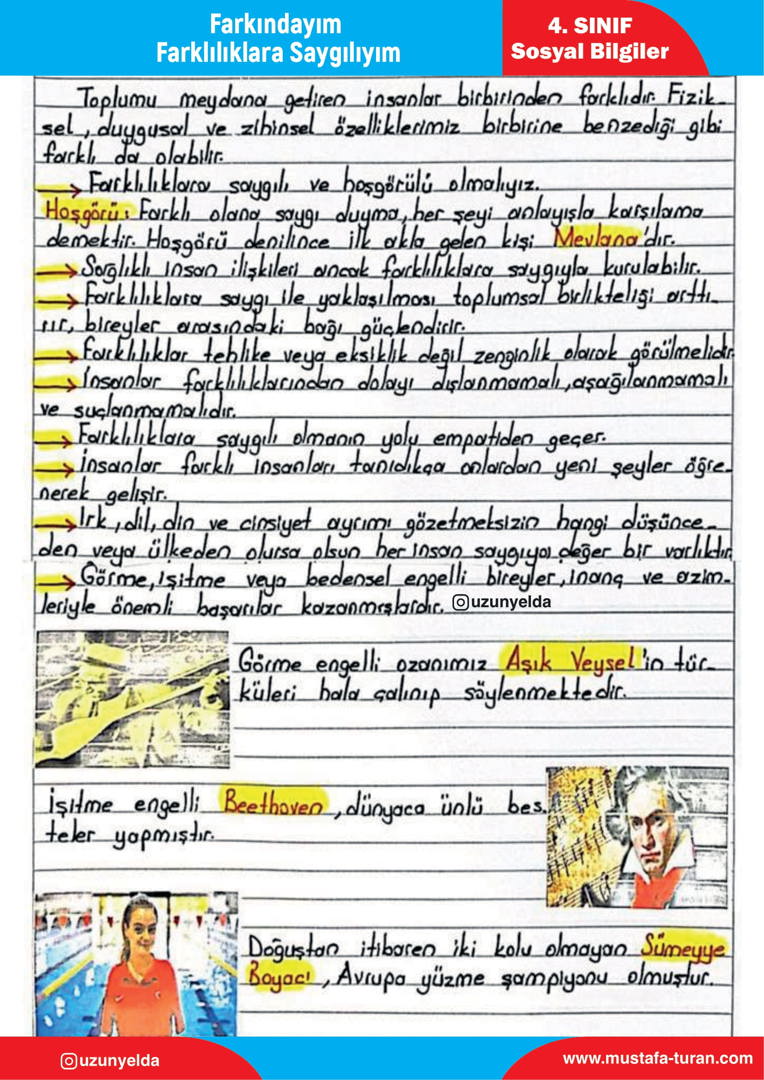 Farkındayım
Farklılıklara Saygılıyım
4. SINIF
Sosyal Bilgiler
Toplumu meydana getiren insanlar birbirinden farklıdır. Fizik-
sel, duygusal ve zihinsel özelliklerimiz birbirine benzediği gibi
farklı da olabilir.
→ Farklılıklara saygılı ve hoşgörülü olmalıyız.
Hoşgörü: Farklı olana saygı duyma, her şeyi anlayışla karşılama
demektir. Hoşgörü denilince ilk akla gelen kişi Mevlana'dır.
→ Sağlıklı insan ilişkileri ancak farklılıklara saygıyla kurulabilir.
→ Farklılıklara saygı ile yaklaşılması toplumsal birlikteliği arttı-
rır, bireyler arasındaki bağı güçlendirir.
→ Farklılıklar tehlike veya eksiklik değil zenginlik olarak görülmelidir.
→ İnsanlar farklılıklarından dolayı dışlanmamalı, aşağılanmamalı
ve suçlanmamalıdır.
→ Farklılıklara saygılı olmanın yolu empatiden geçer.
→ İnsanlar farklı insanları tanıdıkça onlardan yeni şeyler öğre-
nerek gelişir.
→ Irk, dil, din ve cinsiyet ayrımı gözetmeksizin hangi düşünce-
den veya ülkeden olursa olsun her insan saygıya değer bir varlıktır.
→ Görme, işitme veya bedensel engelli bireyler, inanç ve azim-
leriyle önemli başarılar kazanmışlardır. uzunyelda
Görme engelli ozanımız Aşık Veysel'in tür-
küleri hala çalınıp söylenmektedir.
İşitme engelli Beethoven, dünyaca ünlü bes-
teler yapmıştır.
Doğuştan itibaren iki kolu olmayan Sümeyye
Boyacı, Avrupa yüzme şampiyonu olmuştur.
uzunyelda
www.mustafa-turan.com